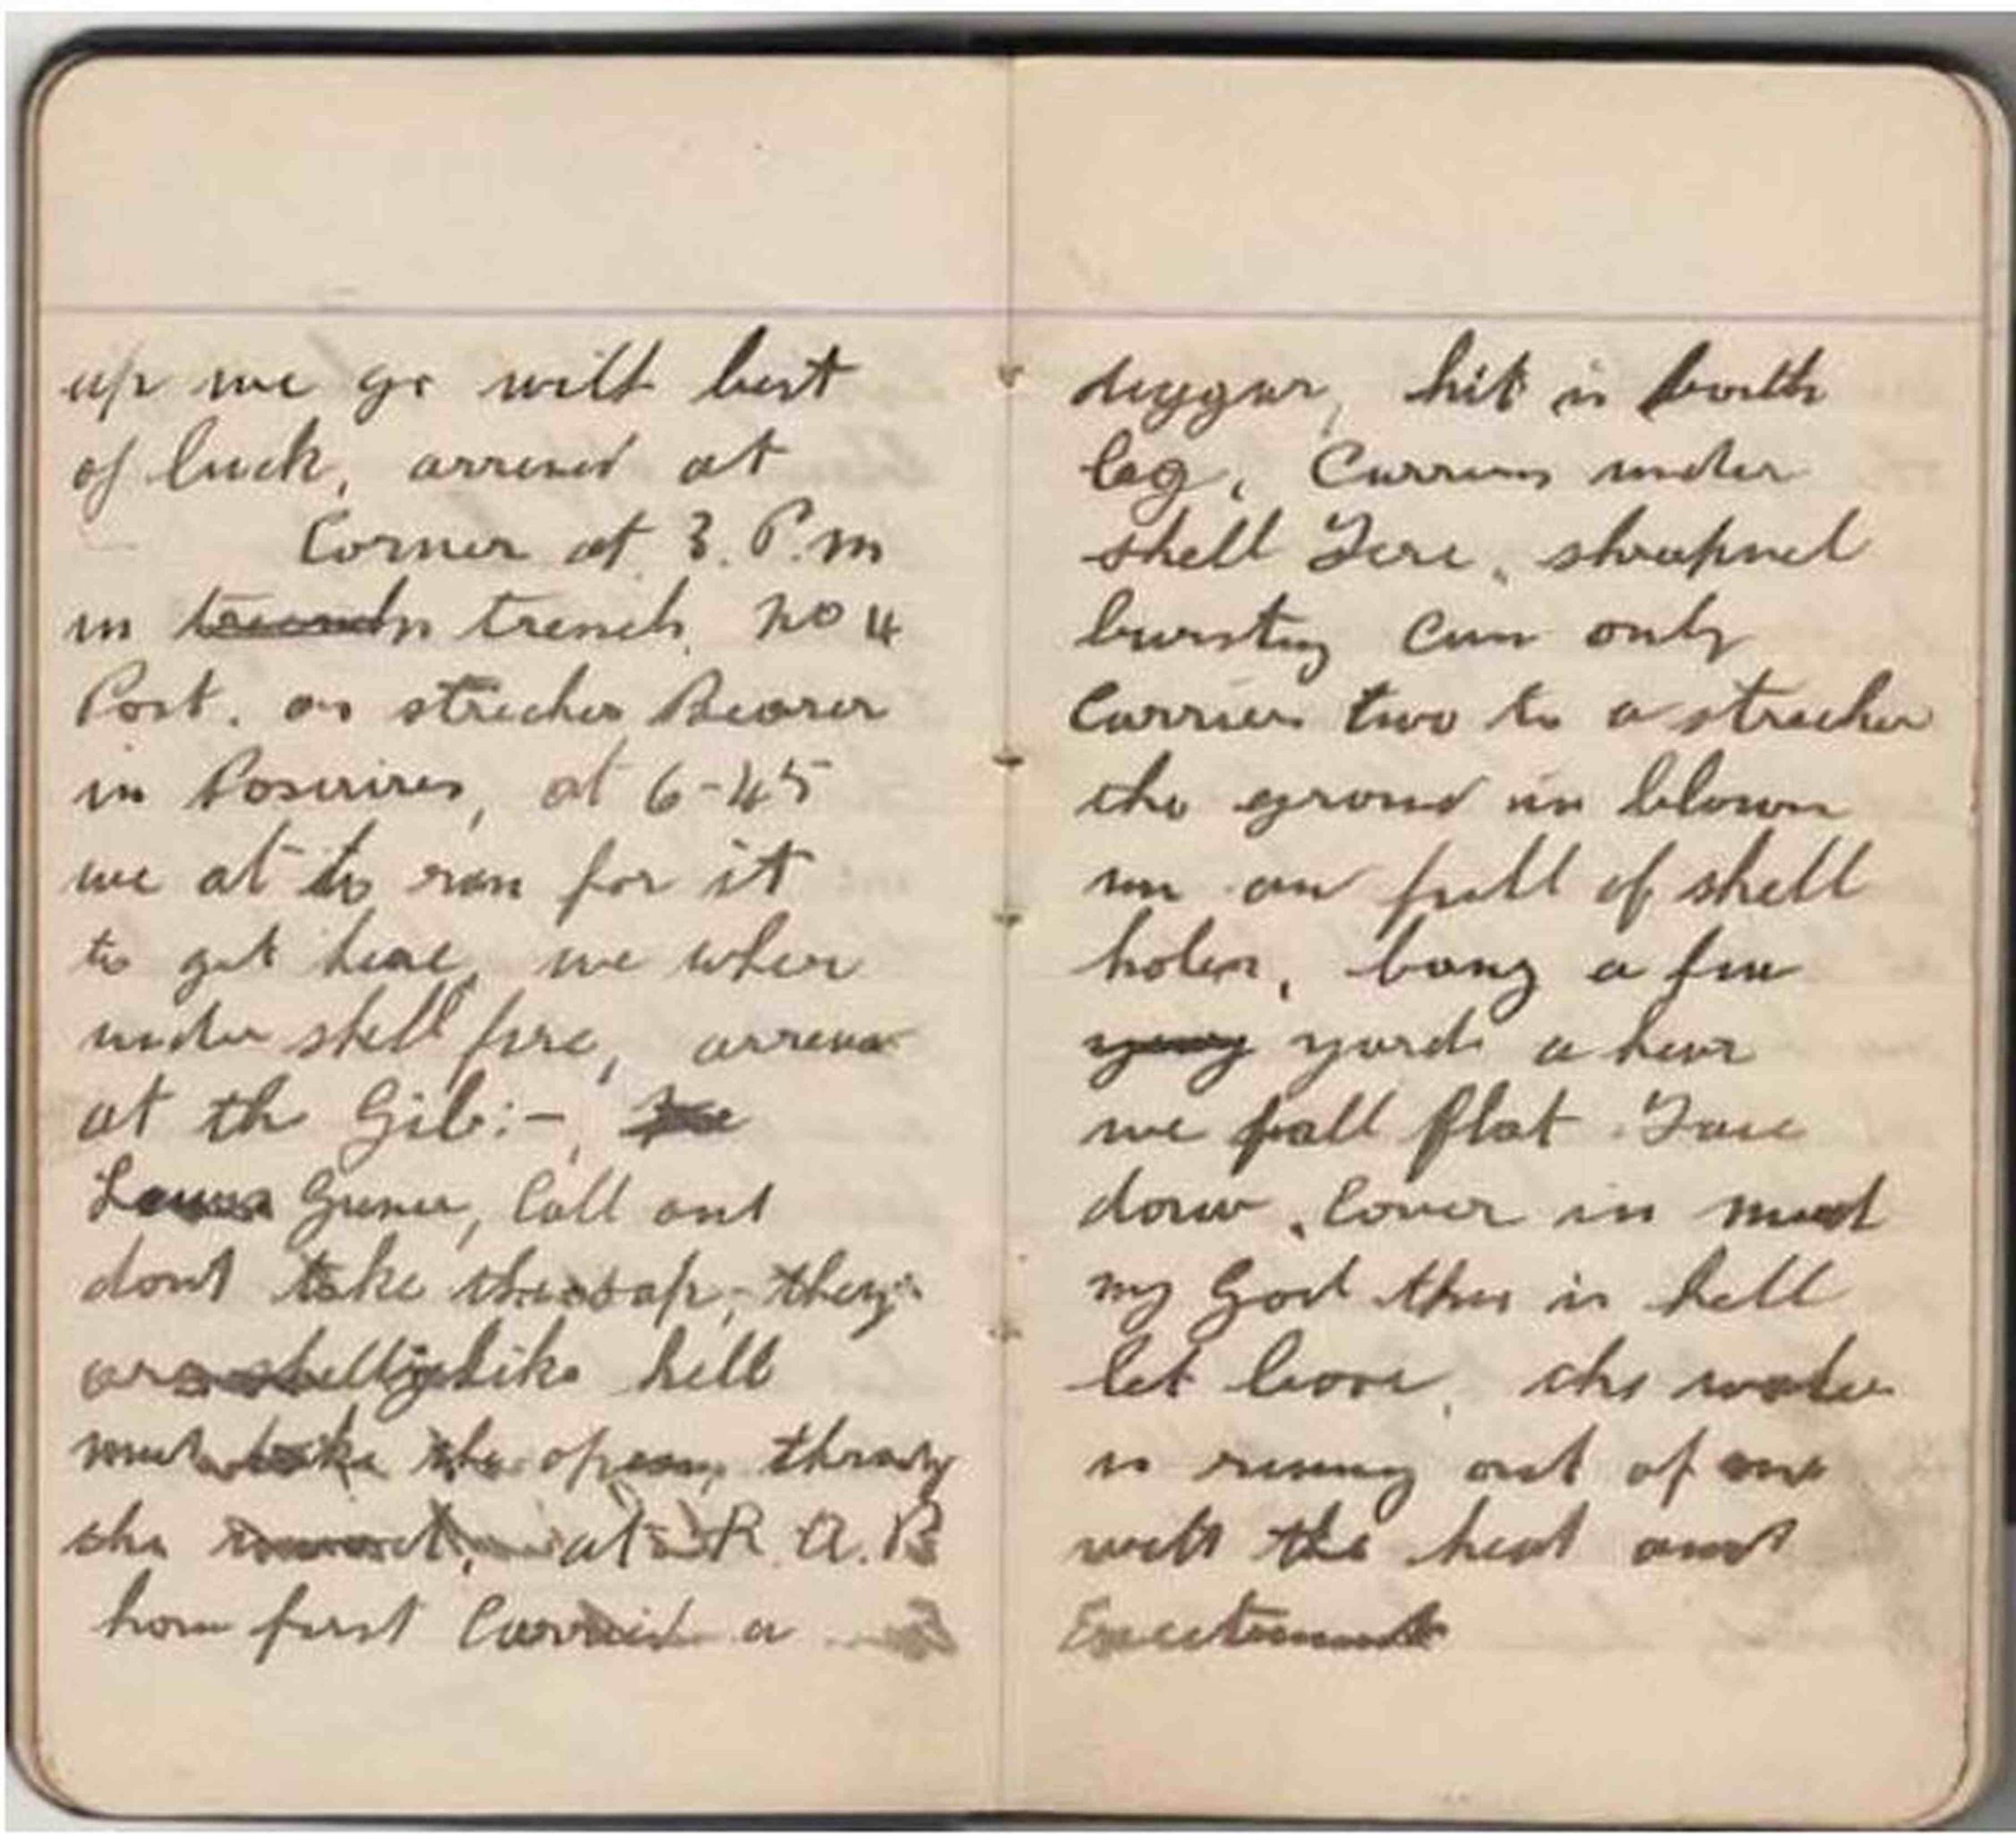 up we go with best
of luck, arrived at
Corner at 3. P.m
in trench. No 4
Post. as strecher Bearer
in Posieires, at 6-45
we at to run for it
to get here, we wher
under shell fire, arrived
at th Gib:-,
Lewes Guner, Call out
dont take the sap, they
are shellig like hell
must take the open, throug
the at R. A. P
how first Carried a
diggar, hit in both
leg, Carring under
shell Fire, shrapnel
bursting Can only
Carrier two to a strecher
the ground in blown
up an full of shell
holes, bang a few
yards a hear
we fall flat Face
down, Cover in mud
my God this is hell
let loose, the water
is runing out of me
with the heat and
Exectement